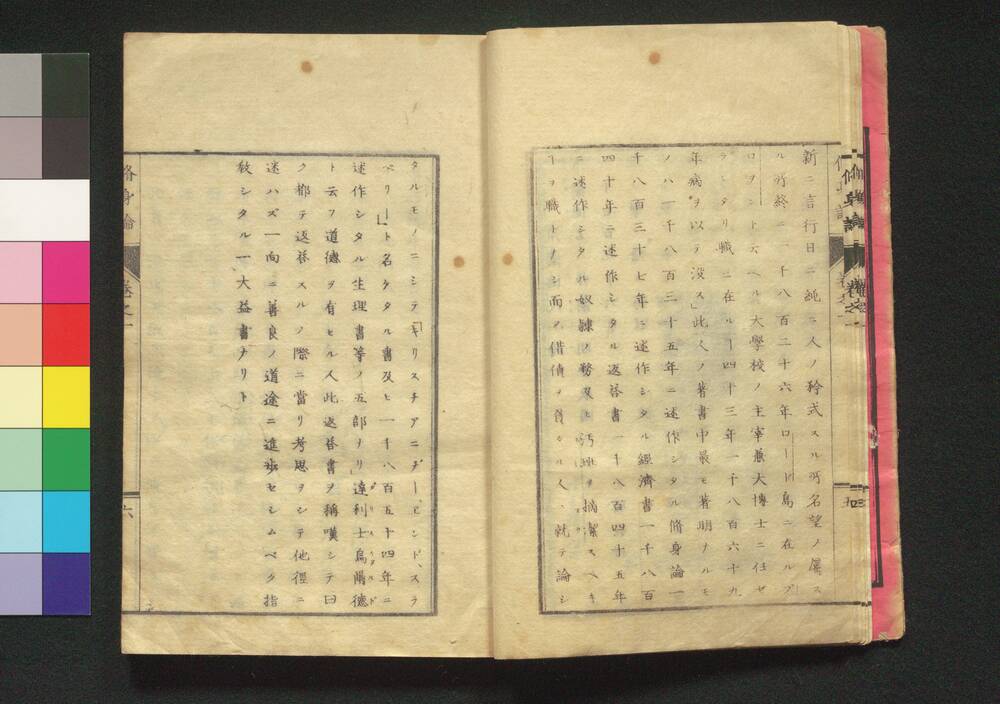 新ニ言行日ニ純ニ人ノ矜式スル所名望ノ屬ス
ル所終ニ一千八百二十六年ロードト島ニ在ルブ
ロヲント云ヘル大學校ノ主宰兼大博士ニ任セ
ラレタリ職ニ在ルー四十三年一千八百六十九
年病ヲ以テ没ス」此人ノ著書中最モ著明ナルモ
ノハ一千八百三十五年ニ述作シタル脩身論一
千八百三十七年ニ述作シタル經濟書一千八百
四十年ニ述作シタル返答書一千八百四十五年
ニ述作シタル奴隷ノ務及ヒ
スヘキ
ーヲ職トノシ而
借債ヲ
ル人ニ就テ論シ
タルモノニシテ「キリスチアニヂー、ヒンド、ステ
ベリー」ト名ケタル書及ヒ一千八百五十四年ニ
述作シタル生理書等ノ五部ナリ」達利士烏爾德
ト云フ道德ヲ有セル人此返答書ヲ稱嘆シテ曰
ク都テ返答スルノ際ニ當リ考思ヲシテ他徑ニ
迷ハズ一向ニ善良ノ道途ニ進歩セシムベク指
教シタル一大益書ナリト
脩身論
卷之一
六